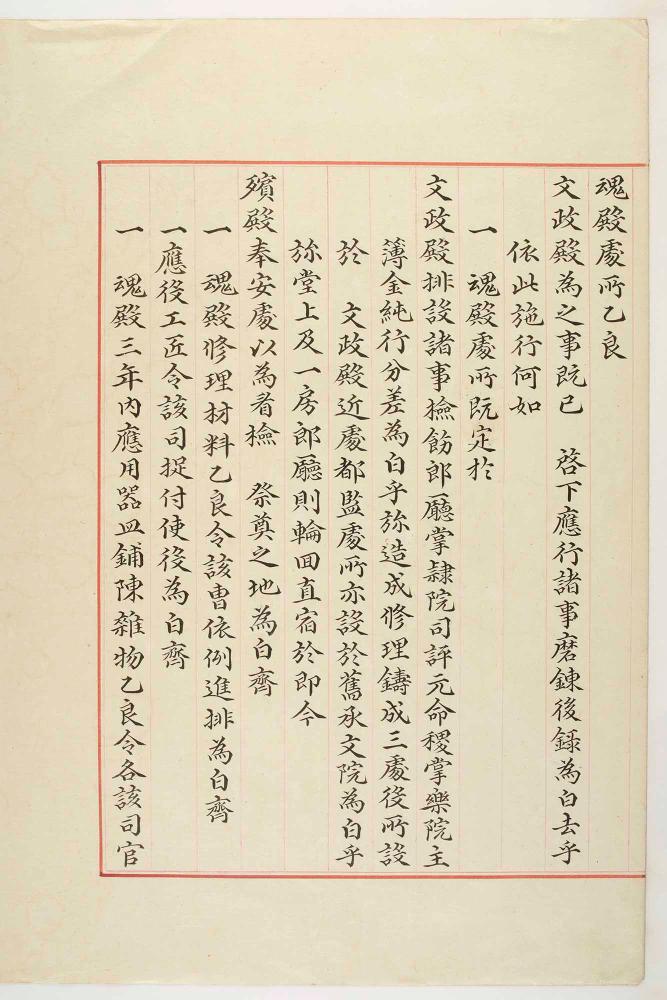 魂殿處所乙良
文政殿為之事旣已　啓下應行諸事磨鍊後錄為白去乎
依此施行何如
一　魂殿處所旣定於
文政殿排設諸事檢飭郎廳掌隷院司評元命稷掌樂院主
簿金純行分差為白乎旀造成修理鑄成三處後所設
於　文政殿近處都監處所亦設於舊承文院為白乎
旀堂上及一房郎廳則輪回直宿於即今
殯殿奉安處以為看檢　祭奠之地為白齊
一　魂殿修理材料乙良令該曹依例進排為白齊
一應役工匠令該司捉付使役為白齊
一　魂殿三年內應用器皿鋪陳雜物乙良令各該司官